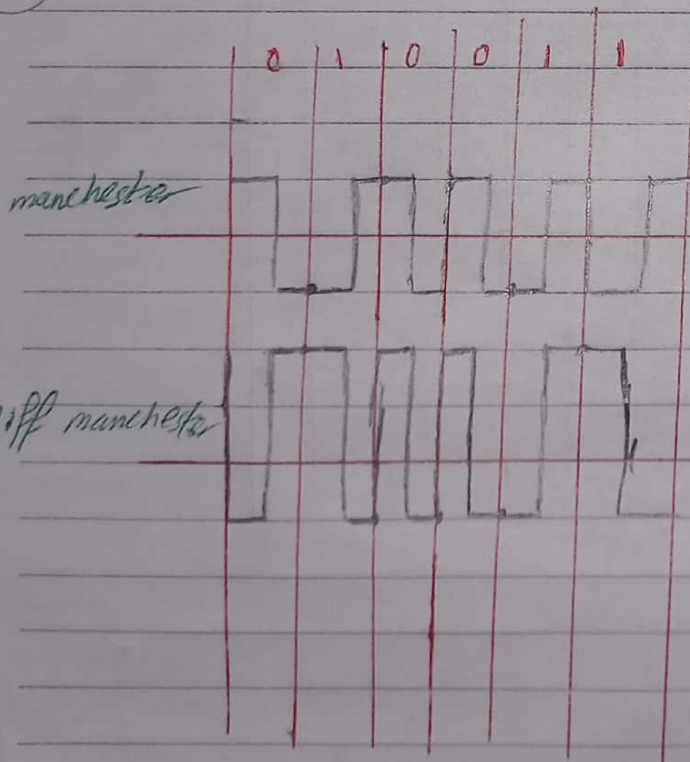 0 1 0 0 1 1
manchester
diff manchester